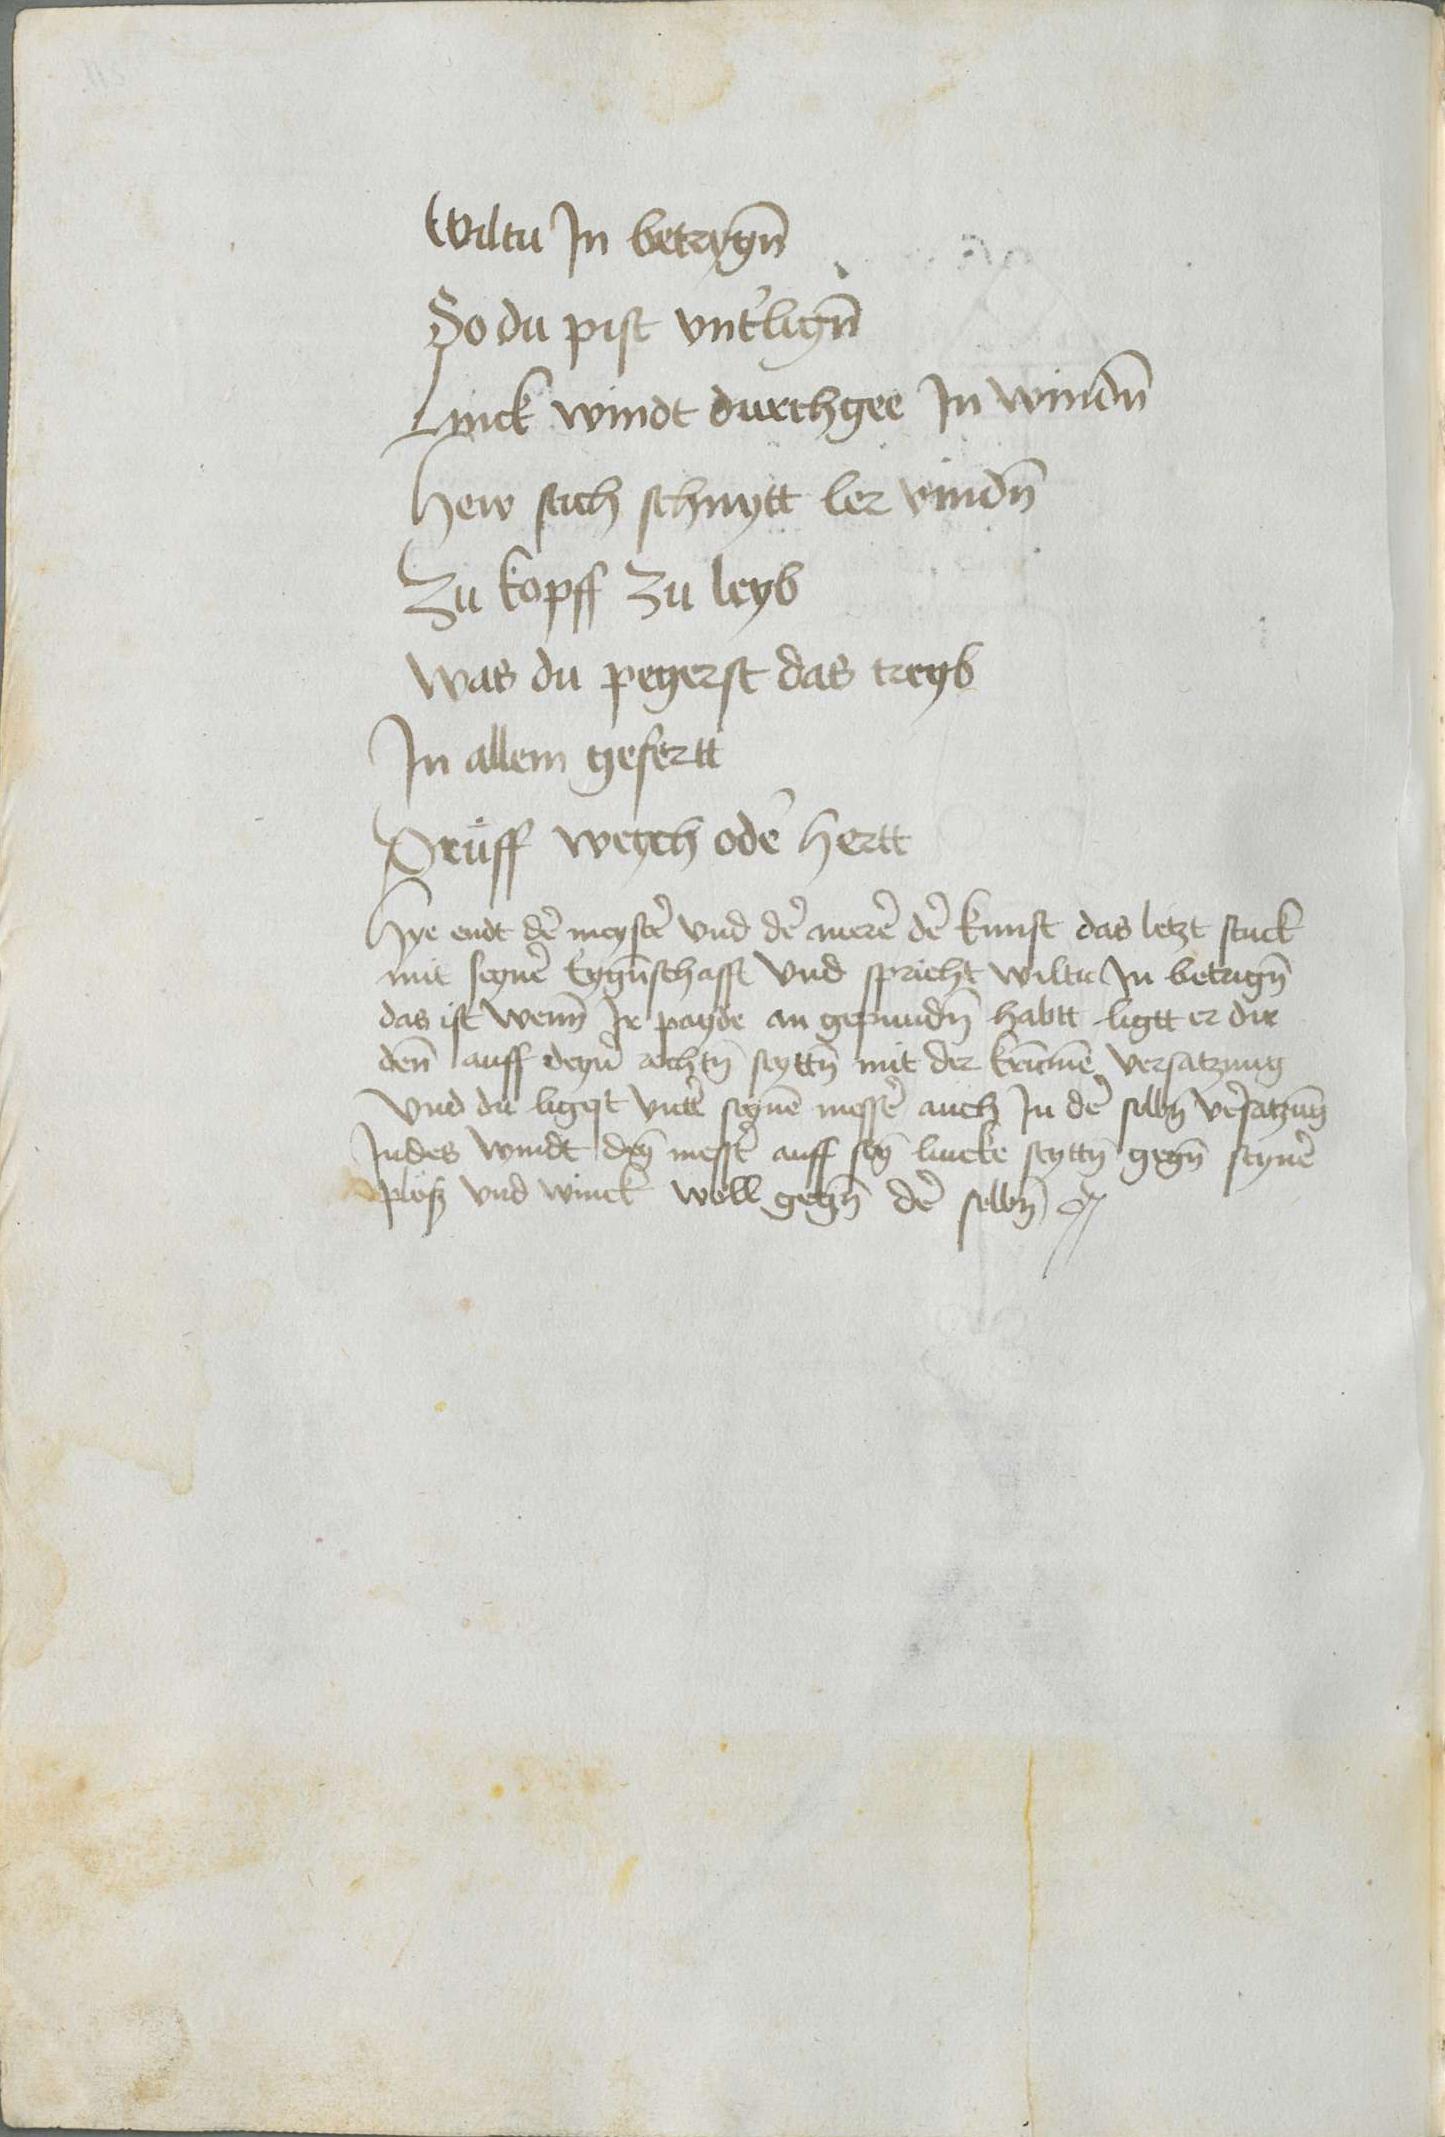 Wiltu Jn betrygn̄
So du pist vnt͛lign̄
Linck windt durchgee Jn windn̄
Hew stich schnytt ler vindn̄
Zu kopff zu leyb
Was du pegerst das treyb
Jn allem gefertt
Prüff weych ode͛ hertt
Hye endt de͛ meyste͛ vnd de͛ merer de͛ kunst das letzt stuck
mit seyne͛ Eygn̄schafft vnd spricht wiltu Jn betrign̄
das ist wenn̄ Jr payde an gepundn̄ habtt ligtt er dir
den̄ auff deyn̄ rechtn̄ seyttn̄ mit der krumē versatzung
vnd du ligest vntte͛ seynē messe͛ auch Jn de͛ selbn̄ ve͛satzung
Jndes windt deyn̄ messe͛ auff seyn̄ lincke seyttn̄ gegn̄ seyne͛
plöß vnd winck woll gegn̄ de͛ selbn̄